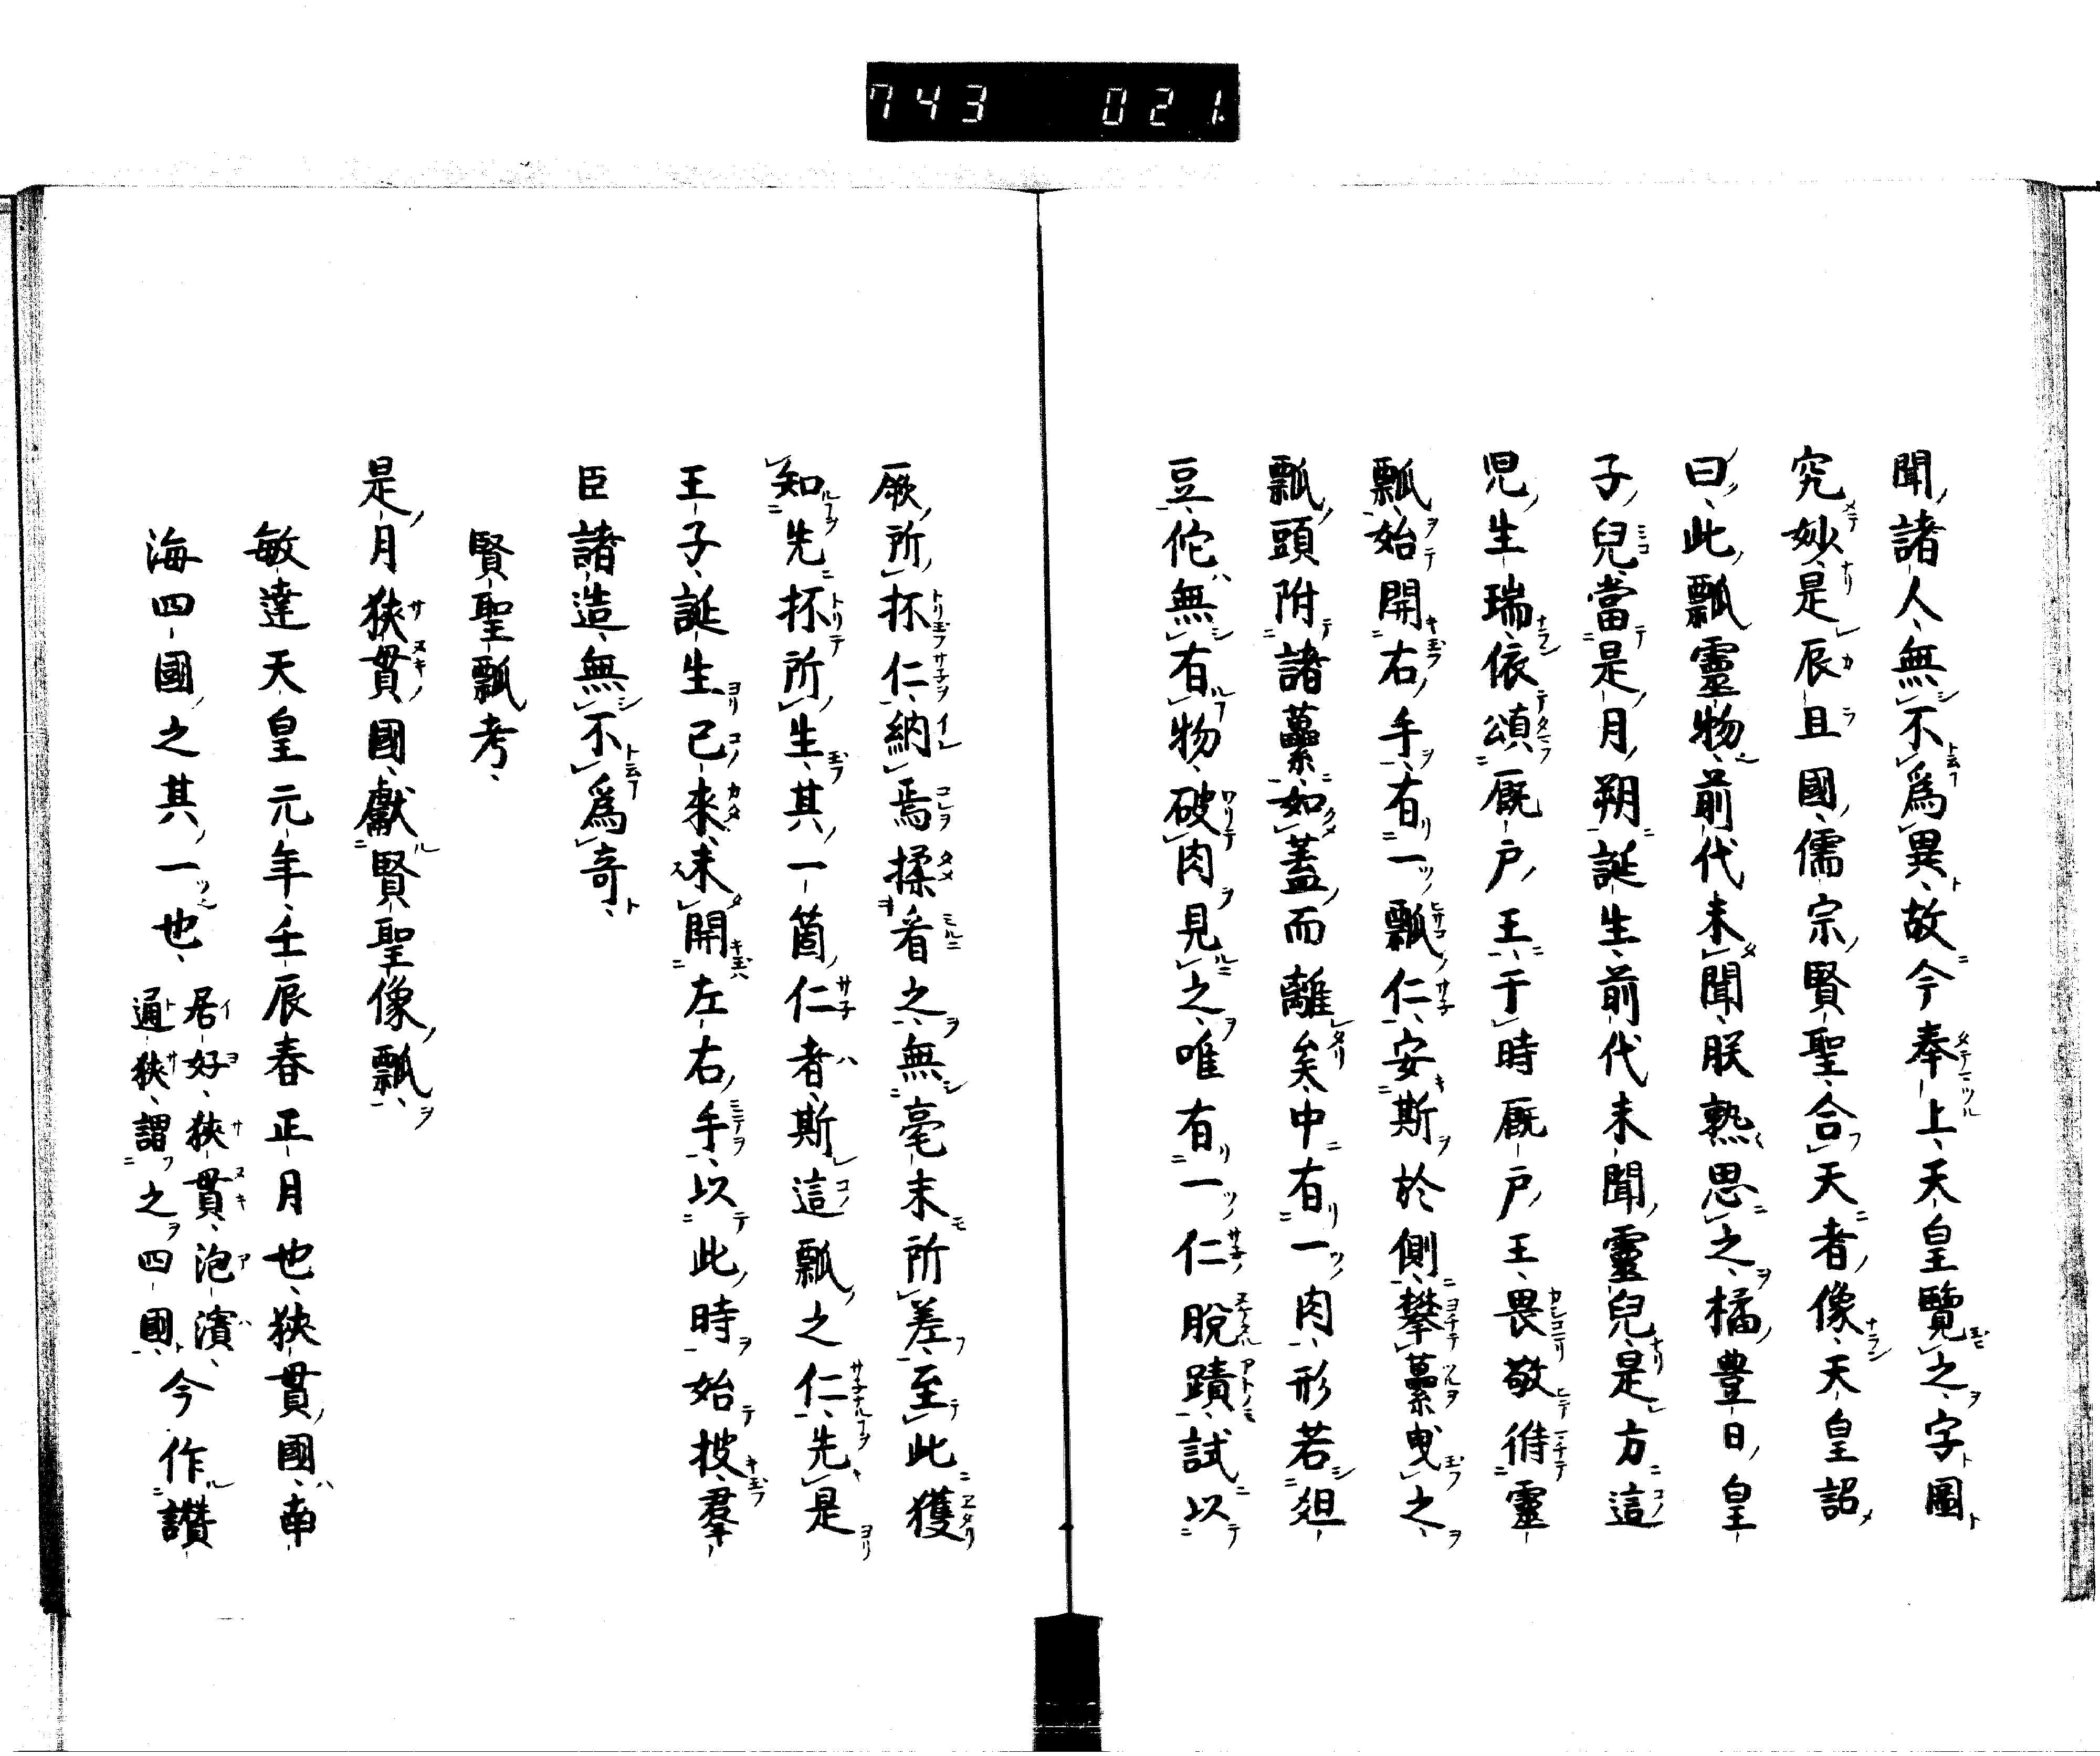 743 021
聞諸人無不為異故今奉上天皇覽之字圖
究妙是辰且國儒宗賢聖合天者像天皇詔
曰此瓢靈物前代未聞朕熟思之橘豊日皇
子兒當是月朔誕生前代未聞靈兒是方這
児生瑞依頌厩戸王于時厩戸王畏敬待靈
瓢始開右手有一瓢仁安斯於側攀蔂曳之
瓢頭附諸蔂如蓋而離矣中有一肉形若爼
豆佗無有物破肉見之唯有一仁脱蹟試以
厥所抔仁納焉揉看之無毫末所差至此獲
知先抔所生其一箇仁者斯這瓢之仁先是
王子誕生已來未開左右手以此時始披羣
臣諸造無不為奇
賢聖瓢考
是月狹貫國獻賢聖像瓢
敏達天皇元年壬辰春正月也狹貫國南
海四國之其一也
居好狹貫泡濱
通狹謂之四國
今作讃